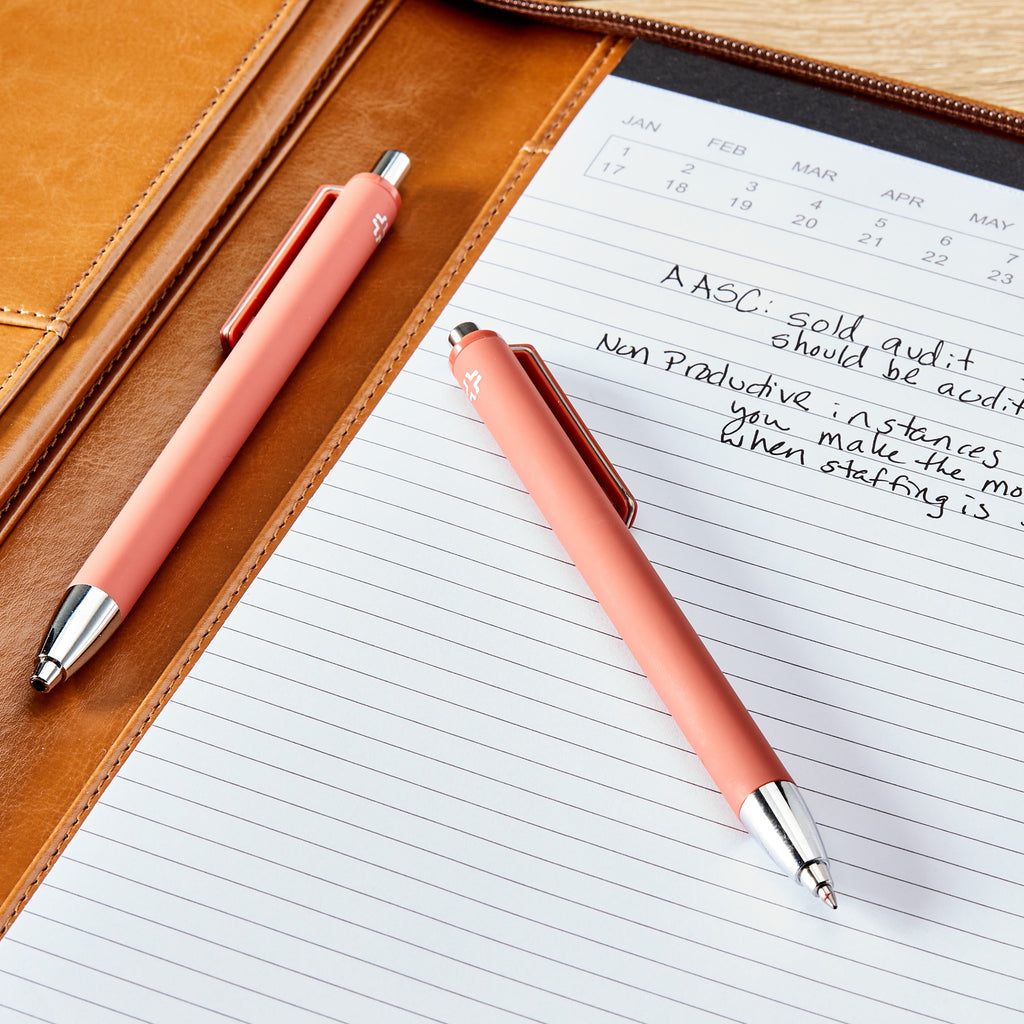 JAN FEB MAR APR MAY
1 2 3 4 5 6 7
17 18 19 20 21 22 23
AASC: sold audit
should be audit
Non Productive instances
you make the mo
when staffing is